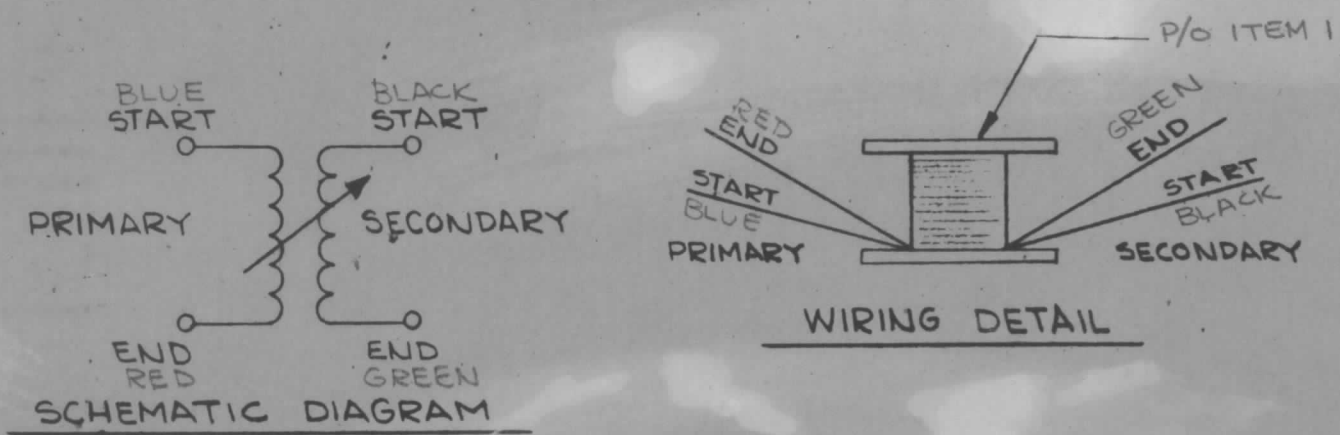 BLUE
START
BLACK
START
PRIMARY
SECONDARY
END
RED
END
GREEN
SCHEMATIC DIAGRAM
P/O ITEM 1
RED
END
START
BLUE
PRIMARY
GREEN
END
START
BLACK
SECONDARY
WIRING DETAIL